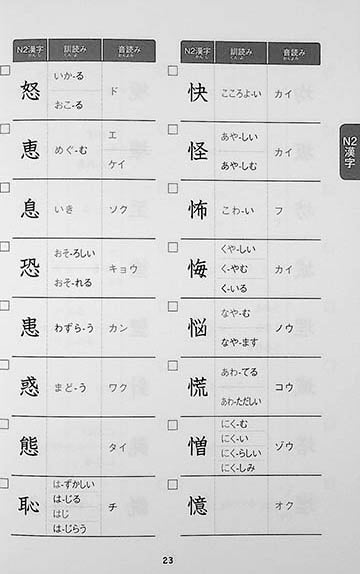 N2漢字 訓読み 音読み
かんじ くんよみ おんよみ
怒 いか-る ド
おこ-る
恵 めぐ-む エ
ケイ
息 いき ソク
恐 おそ-ろしい キョウ
おそ-れる
患 わずら-う カン
惑 まど-う ワク
態 タイ
恥 は-ずかしい チ
は-じる
はじ
は-じらう
N2漢字 訓読み 音読み
かんじ くんよみ おんよみ
快 こころよ-い カイ
怪 あや-しい カイ
あや-しむ
怖 こわ-い フ
悔 くや-しい カイ
く-やむ
く-いる
悩 なや-む ノウ
なや-ます
慌 あわ-てる コウ
あわ-ただしい
憎 にく-む ゾウ
にく-い
にく-らしい
にく-しみ
憶 オク
N2漢字
23